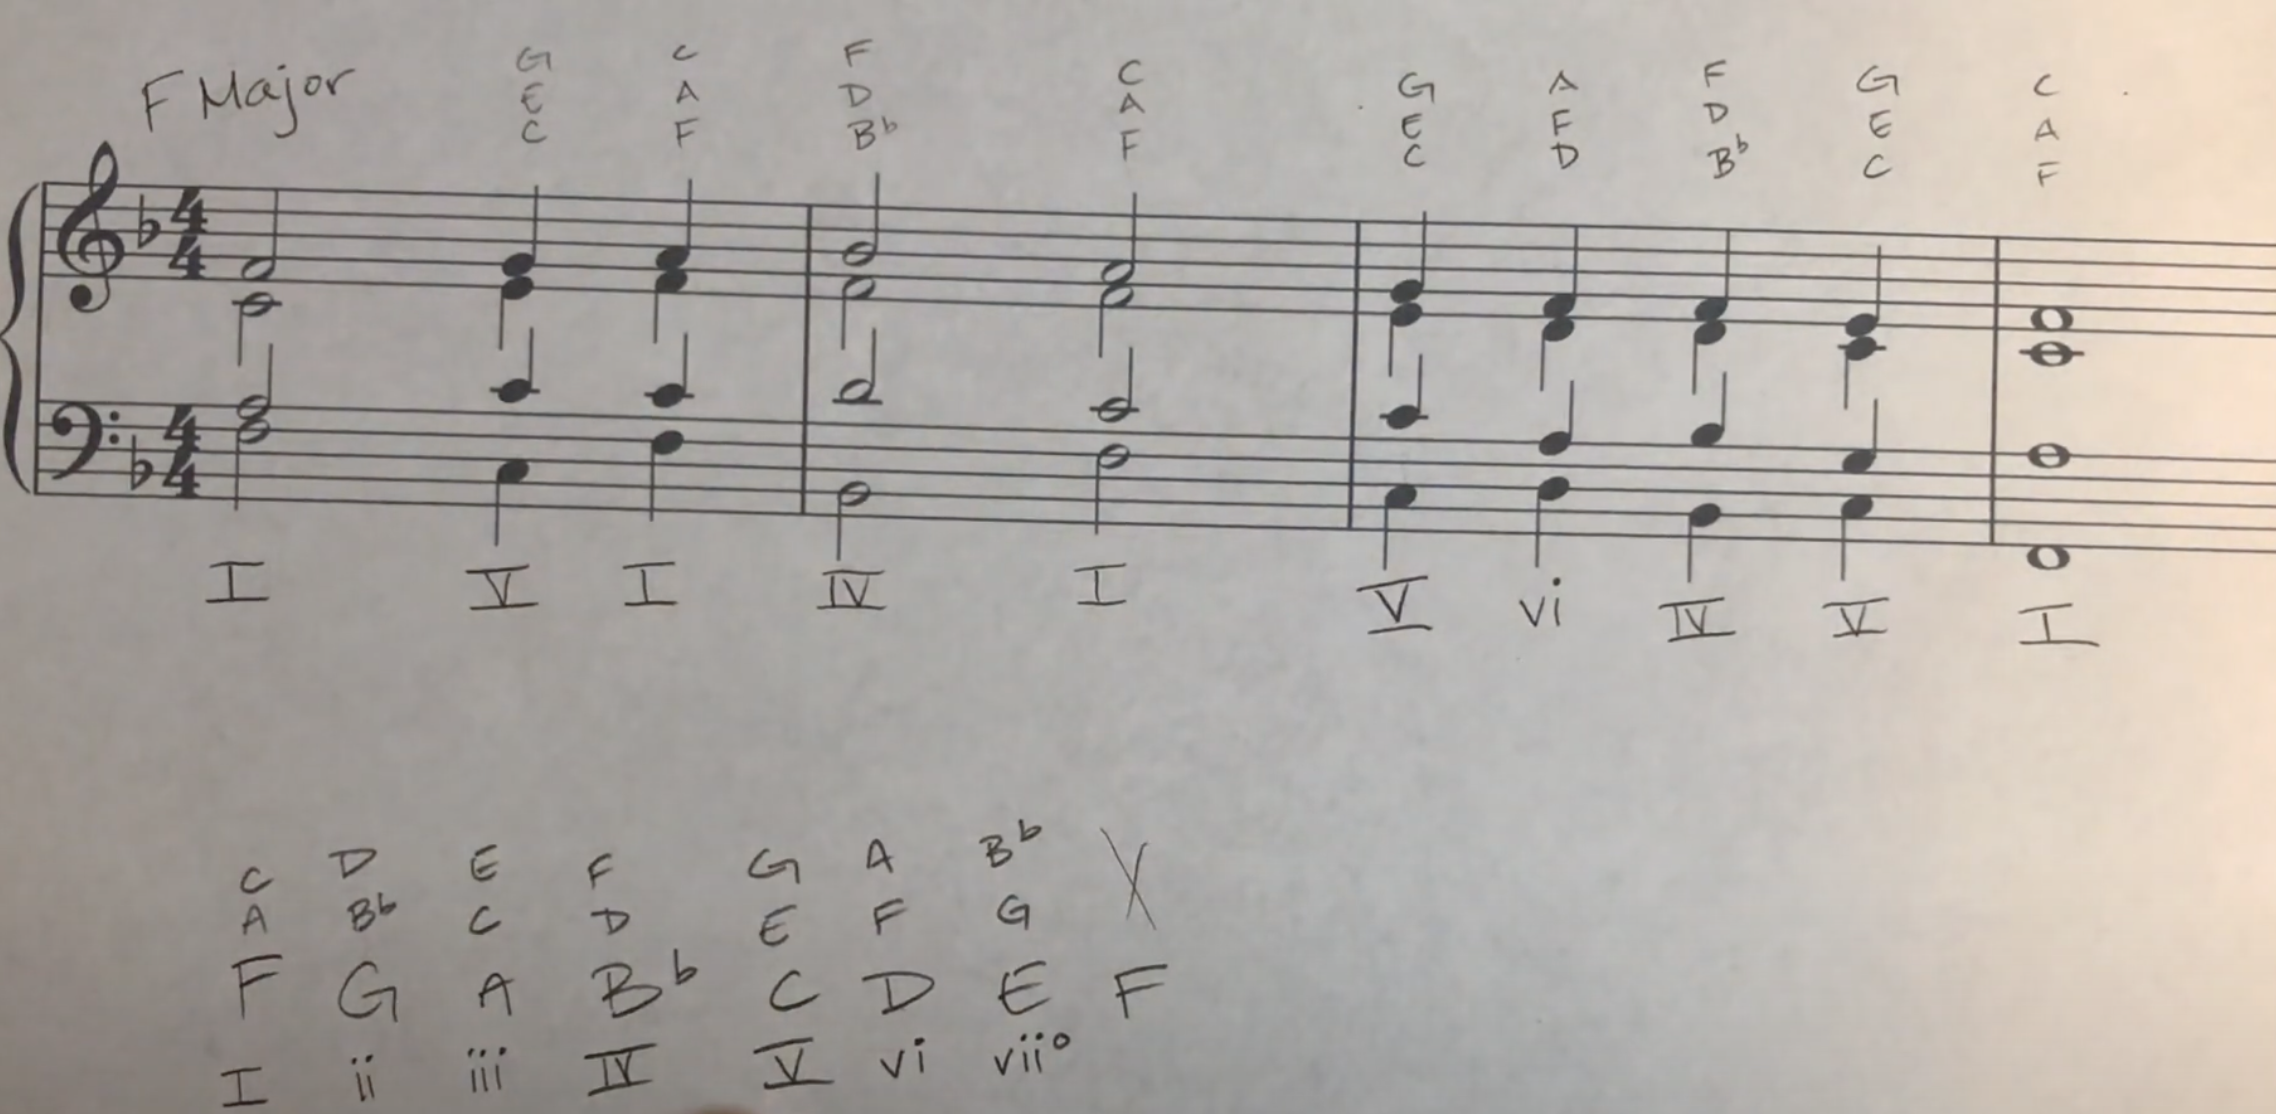 F Major
G C F C G A F G C
E A D A E F D E A
C F Bb F C D Bb C F
4 4
4 4
I V I IV I V vi IV V I
C D E F G A Bb X
A Bb C D E F G
F G A Bb C D E F
I ii iii IV V vi vii°